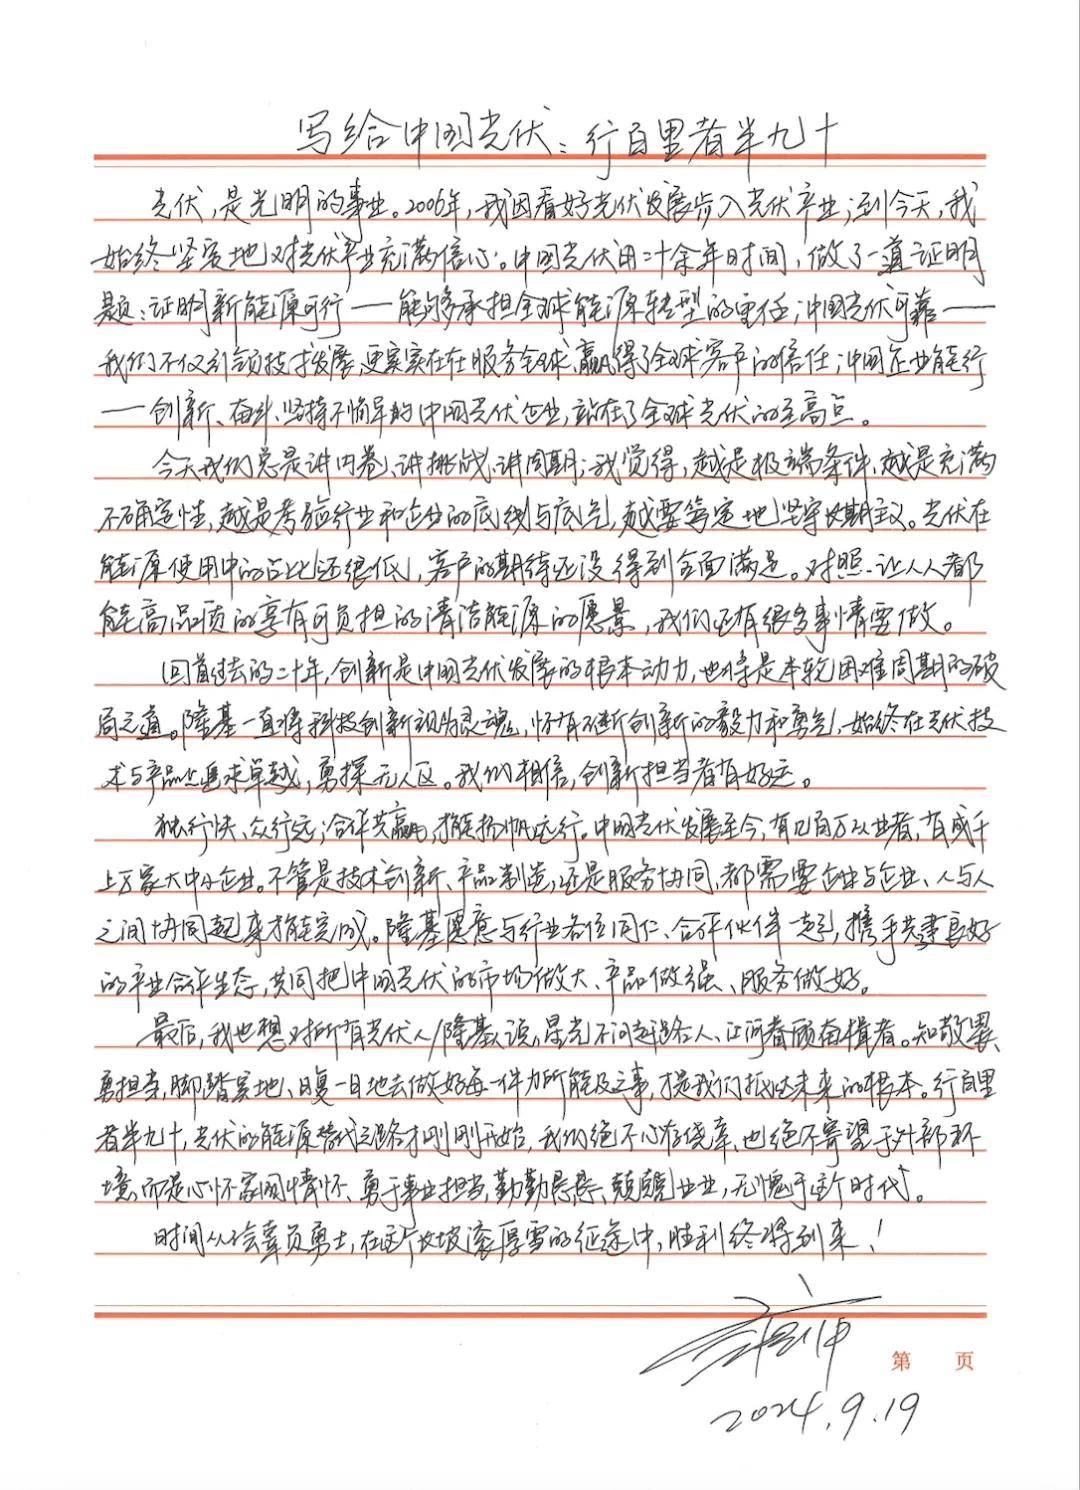 写给中国光伏：行百里者半九十
光伏，是光明的事业。2006年，我因看好光伏发展步入光伏产业；到今天，我
始终坚实地对光伏产业充满信心。中国光伏用二十余年时间，做了一道证明
题：证明新能源可行——能够承担全球能源转型的重任；中国光伏可靠——
我们不仅引领技术发展，更实实在在服务全球、赢得了全球客户的信任；中国企业能行
——创新、奋斗、坚持不懈早的中国光伏企业，站在了全球光伏的至高点。
今天我们总是讲内卷、讲挑战、讲周期；我觉得，越是极端条件、越是充满
不确定性，越是考验行业和企业的底线与底气，越要笃定地坚守长期主义。光伏在
能源使用中的占比还很低，客户的期待还没得到全面满足。对照让人人都
能高品质的享有可负担的清洁能源的愿景，我们还有很多事情要做。
回首过去的二十年，创新是中国光伏发展的根本动力，也将是本轮困难周期的破
局之道。隆基一直将科技创新视为灵魂，怀有不断创新的毅力和勇气，始终在光伏技
术与产品上追求卓越，勇探无人区。我们相信，创新担当者有好运。
独行快、众行远；合作共赢，才能扬帆远行。中国光伏发展至今，有几百万从业者，有成千
上万家大中小企业。不管是技术创新、产品制造，还是服务协同，都需要企业与企业、人与人
之间协同起来才能完成。隆基愿意与行业各位同仁、合作伙伴一起，携手共建良好
的产业合作生态，共同把中国光伏的市场做大、产品做强、服务做好。
最后，我也想对所有光伏人/隆基人说，星光不问赶路人、江河眷顾奋楫者。知敬畏、
勇担当，脚踏实地、日复一日地去做好每一件力所能及之事，才是我们抵达未来的根本。行百里
者半九十，光伏的能源替代之路才刚刚开始，我们绝不心存侥幸、也绝不寄望于外部环
境，而是心怀家国情怀、勇于事业担当，勤勤恳恳、兢兢业业，无愧于这个时代。
时间从不会辜负勇士，在这个长坡滚厚雪的征途中，胜利终将到来！
2024.9.19
第 页